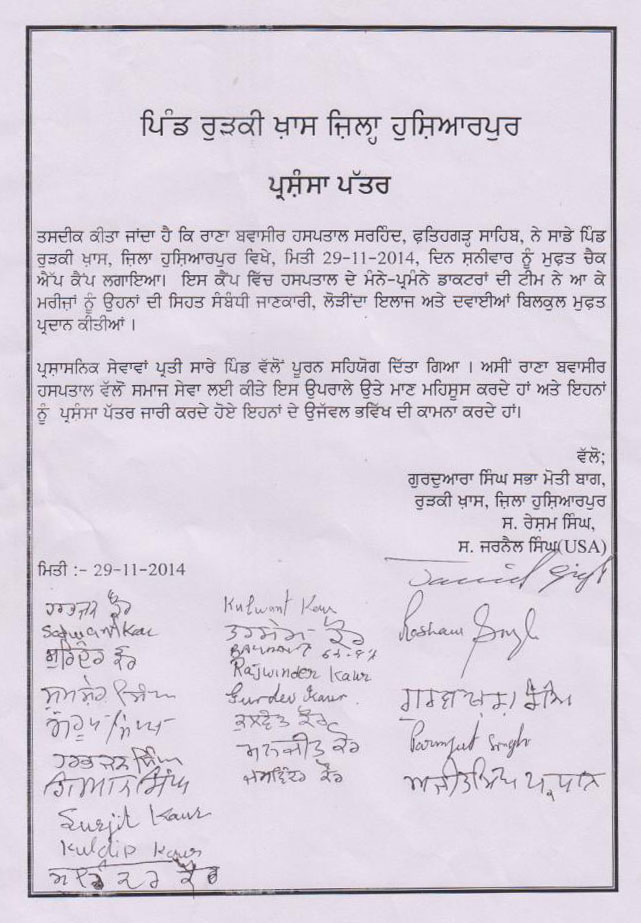 ਪਿੰਡ ਰੁੜਕੀ ਖ਼ਾਸ ਜ਼ਿਲ੍ਹਾ ਹੁਸ਼ਿਆਰਪੁਰ
ਪ੍ਰਸ਼ੰਸਾ ਪੱਤਰ
ਤਸਦੀਕ ਕੀਤਾ ਜਾਂਦਾ ਹੈ ਕਿ ਰਾਣਾ ਬਵਾਸੀਰ ਹਸਪਤਾਲ ਸਰਹਿੰਦ, ਫ਼ਤਿਹਗੜ੍ਹ ਸਾਹਿਬ, ਨੇ ਸਾਡੇ ਪਿੰਡ
ਰੁੜਕੀ ਖ਼ਾਸ, ਜ਼ਿਲਾ ਹੁਸ਼ਿਆਰਪੁਰ ਵਿਖੇ, ਮਿਤੀ 29-11-2014, ਦਿਨ ਸ਼ਨੀਵਾਰ ਨੂੰ ਮੁਫ਼ਤ ਚੈਕ
ਐੱਪ ਕੈਂਪ ਲਗਾਇਆ। ਇਸ ਕੈਂਪ ਵਿੱਚ ਹਸਪਤਾਲ ਦੇ ਮੰਨੇ-ਪ੍ਰਮੰਨੇ ਡਾਕਟਰਾਂ ਦੀ ਟੀਮ ਨੇ ਆ ਕੇ
ਮਰੀਜ਼ਾਂ ਨੂੰ ਉਹਨਾਂ ਦੀ ਸਿਹਤ ਸੰਬੰਧੀ ਜਾਣਕਾਰੀ, ਲੋੜੀਂਦਾ ਇਲਾਜ ਅਤੇ ਦਵਾਈਆਂ ਬਿਲਕੁਲ ਮੁਫ਼ਤ
ਪ੍ਰਦਾਨ ਕੀਤੀਆਂ ।
ਪ੍ਰਸ਼ਾਸਨਿਕ ਸੇਵਾਵਾਂ ਪ੍ਰਤੀ ਸਾਰੇ ਪਿੰਡ ਵੱਲੋਂ ਪੂਰਨ ਸਹਿਯੋਗ ਦਿੱਤਾ ਗਿਆ । ਅਸੀਂ ਰਾਣਾ ਬਵਾਸੀਰ
ਹਸਪਤਾਲ ਵੱਲੋਂ ਸਮਾਜ ਸੇਵਾ ਲਈ ਕੀਤੇ ਇਸ ਉਪਰਾਲੇ ਉਤੇ ਮਾਣ ਮਹਿਸੂਸ ਕਰਦੇ ਹਾਂ ਅਤੇ ਇਹਨਾਂ
ਨੂੰ ਪ੍ਰਸ਼ੰਸਾ ਪੱਤਰ ਜਾਰੀ ਕਰਦੇ ਹੋਏ ਇਹਨਾਂ ਦੇ ਉਜੱਵਲ ਭਵਿੱਖ ਦੀ ਕਾਮਨਾ ਕਰਦੇ ਹਾਂ।
ਵੱਲੋ;
ਗੁਰਦੁਆਰਾ ਸਿੰਘ ਸਭਾ ਮੋਤੀ ਬਾਗ,
ਰੁੜਕੀ ਖ਼ਾਸ, ਜ਼ਿਲਾ ਹੁਸ਼ਿਆਰਪੁਰ
ਸ. ਰੇਸ਼ਮ ਸਿੰਘ,
ਸ. ਜਰਨੈਲ ਸਿੰਘ(USA)
ਮਿਤੀ :- 29-11-2014
ਹਰਭਜਨ ਕੌਰ
Satwant Kau
ਸੁਰਿੰਦਰ ਕੌਰ
ਹਰਭਜਨ ਸਿੰਘ
ਗਿਆਨ ਸਿੰਘ
Surjit Kaur
Kuldip Kaur
Kulwant Kaur
ਕੌਰ
Rajwinder Kaur
Gurdev Kaur
ਕੁਲਵੰਤ ਕੌਰ
ਮਨਜੀਤ ਕੌਰ
ਜਸਵਿੰਦਰ ਕੌਰ
Resham Singh
Parmjeet Singh
ਅਜੀਤ ਸਿੰਘ ਪ੍ਰਧਾਨ